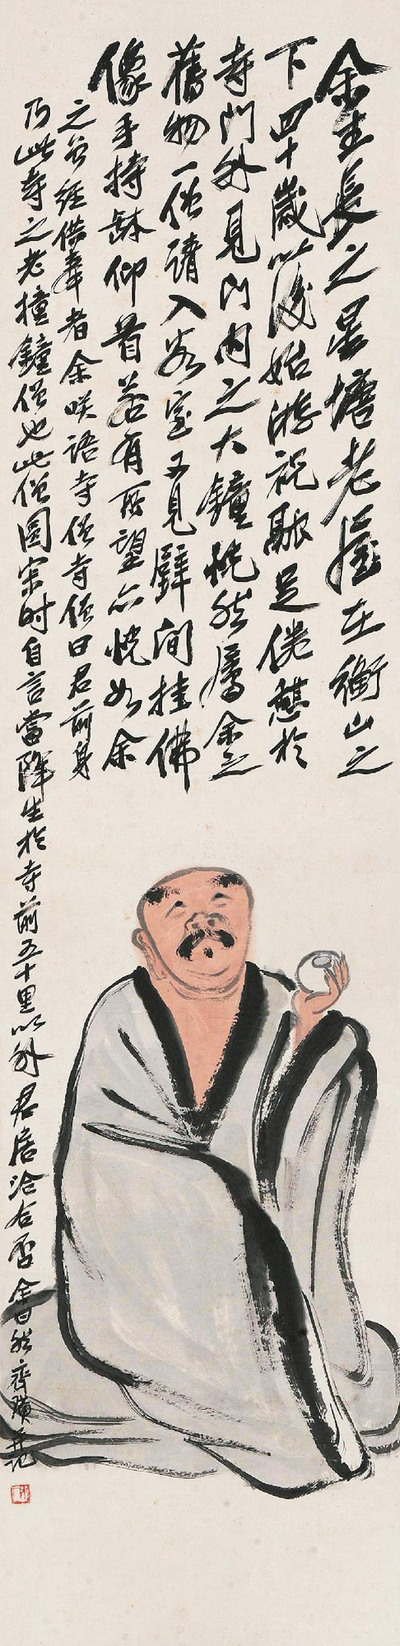 余生長之星塘老屋在衡山之
下四十歲以後始游祝融足倦憩於
寺門外見門内之大鐘恍然屬余之
舊物一僧請入客室又見壁間挂佛
像手持缽仰首若有所望亦恍如余
之曾經供奉者余咲語寺僧寺僧曰君前身
乃此寺之老撞鐘僧也此僧圓寂時自言當降生於寺前五十里以外君居洽合否余曰然齊璜并記